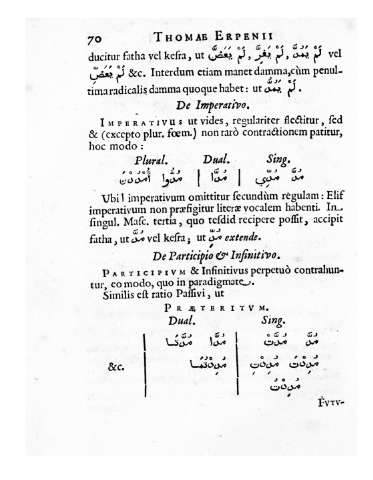 70 THOMAE ERPENII
ducitur fatha vel kesra, ut لَمْ يَمُدَّ, لَمْ يَفِرَّ, لَمْ يَعَضَّ vel
لَمْ يَعَضِّ &c. Interdum etiam manet damma, cùm penul-
tima radicalis damma quoque habet: ut لَمْ يَمُدُّ.
De Imperativo.
IMPERATIVUS ut vides, regulariter flectitur, sed
& (excepto plur. fœm.) non rarò contractionem patitur,
hoc modo:
Plural. Dual. Sing.
مُدُّوا أُمْدُدْنَ | مُدَّا | مُدَّ مُدِّي
Ubi ا imperativum omittitur secundùm regulam: Elif
imperativum non præfigitur literæ vocalem habenti. In
singul. Masc. tertia, quo tesdid recipere possit, accipit
fatha, ut مُدَّ vel kesra; ut مُدِّ extende.
De Participio & Infinitivo.
PARTICIPIUM & Infinitivus perpetuò contrahun-
tur, eo modo, quo in paradigmate.
Similis est ratio Passivi, ut
PRÆTERITUM.
Dual. Sing.
مُدَّا مُدَّتَا | مُدَّ مُدَّتْ
&c. مُدِدْتُمَا | مُدِدْتَ مُدِدْتِ
مُدِدْتُ
FUTU-